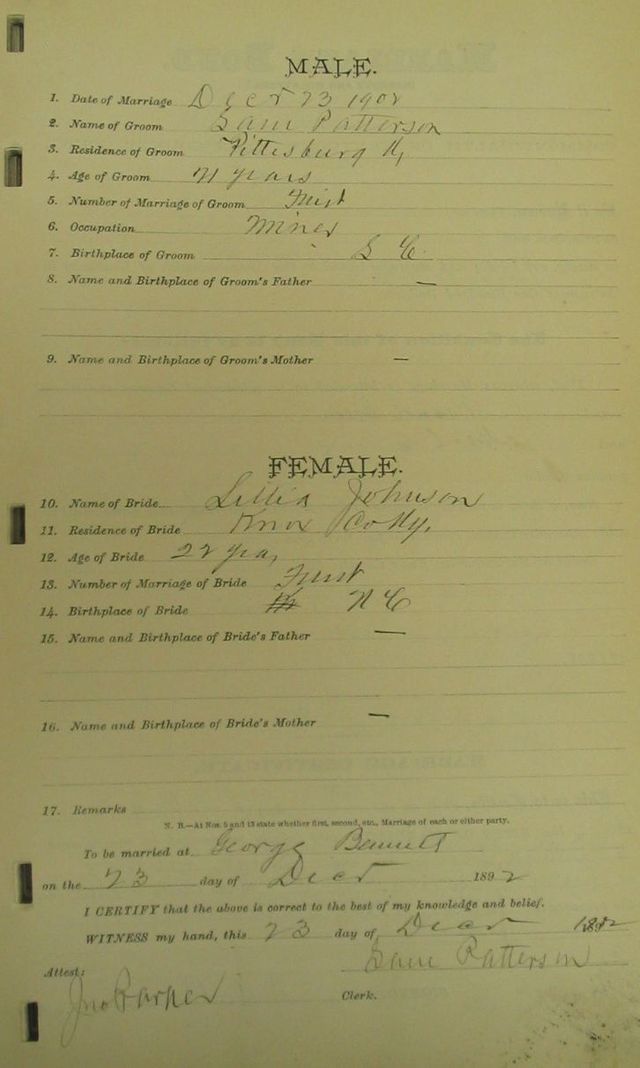 MALE.
1. Date of Marriage Decr 23 1902
2. Name of Groom Sam Patterson
3. Residence of Groom Pittsburg Ky
4. Age of Groom 21 years
5. Number of Marriage of Groom First
6. Occupation Miner
7. Birthplace of Groom S C.
8. Name and Birthplace of Groom's Father —
9. Name and Birthplace of Groom's Mother —
FEMALE.
10. Name of Bride Johnson
11. Residence of Bride Knox Co Ky.
12. Age of Bride 22 yea,
13. Number of Marriage of Bride First
14. Birthplace of Bride N C
15. Name and Birthplace of Bride's Father —
16. Name and Birthplace of Bride's Mother —
17. Remarks
N. B.—At Nos. 5 and 13 state whether first, second, etc., Marriage of each or either party.
To be married at George Bennett
on the 23 day of Decr 1892
I CERTIFY that the above is correct to the best of my knowledge and belief.
WITNESS my hand, this 23 day of Decr
Sam Patterson
Attest:
Jno Parker Clerk.